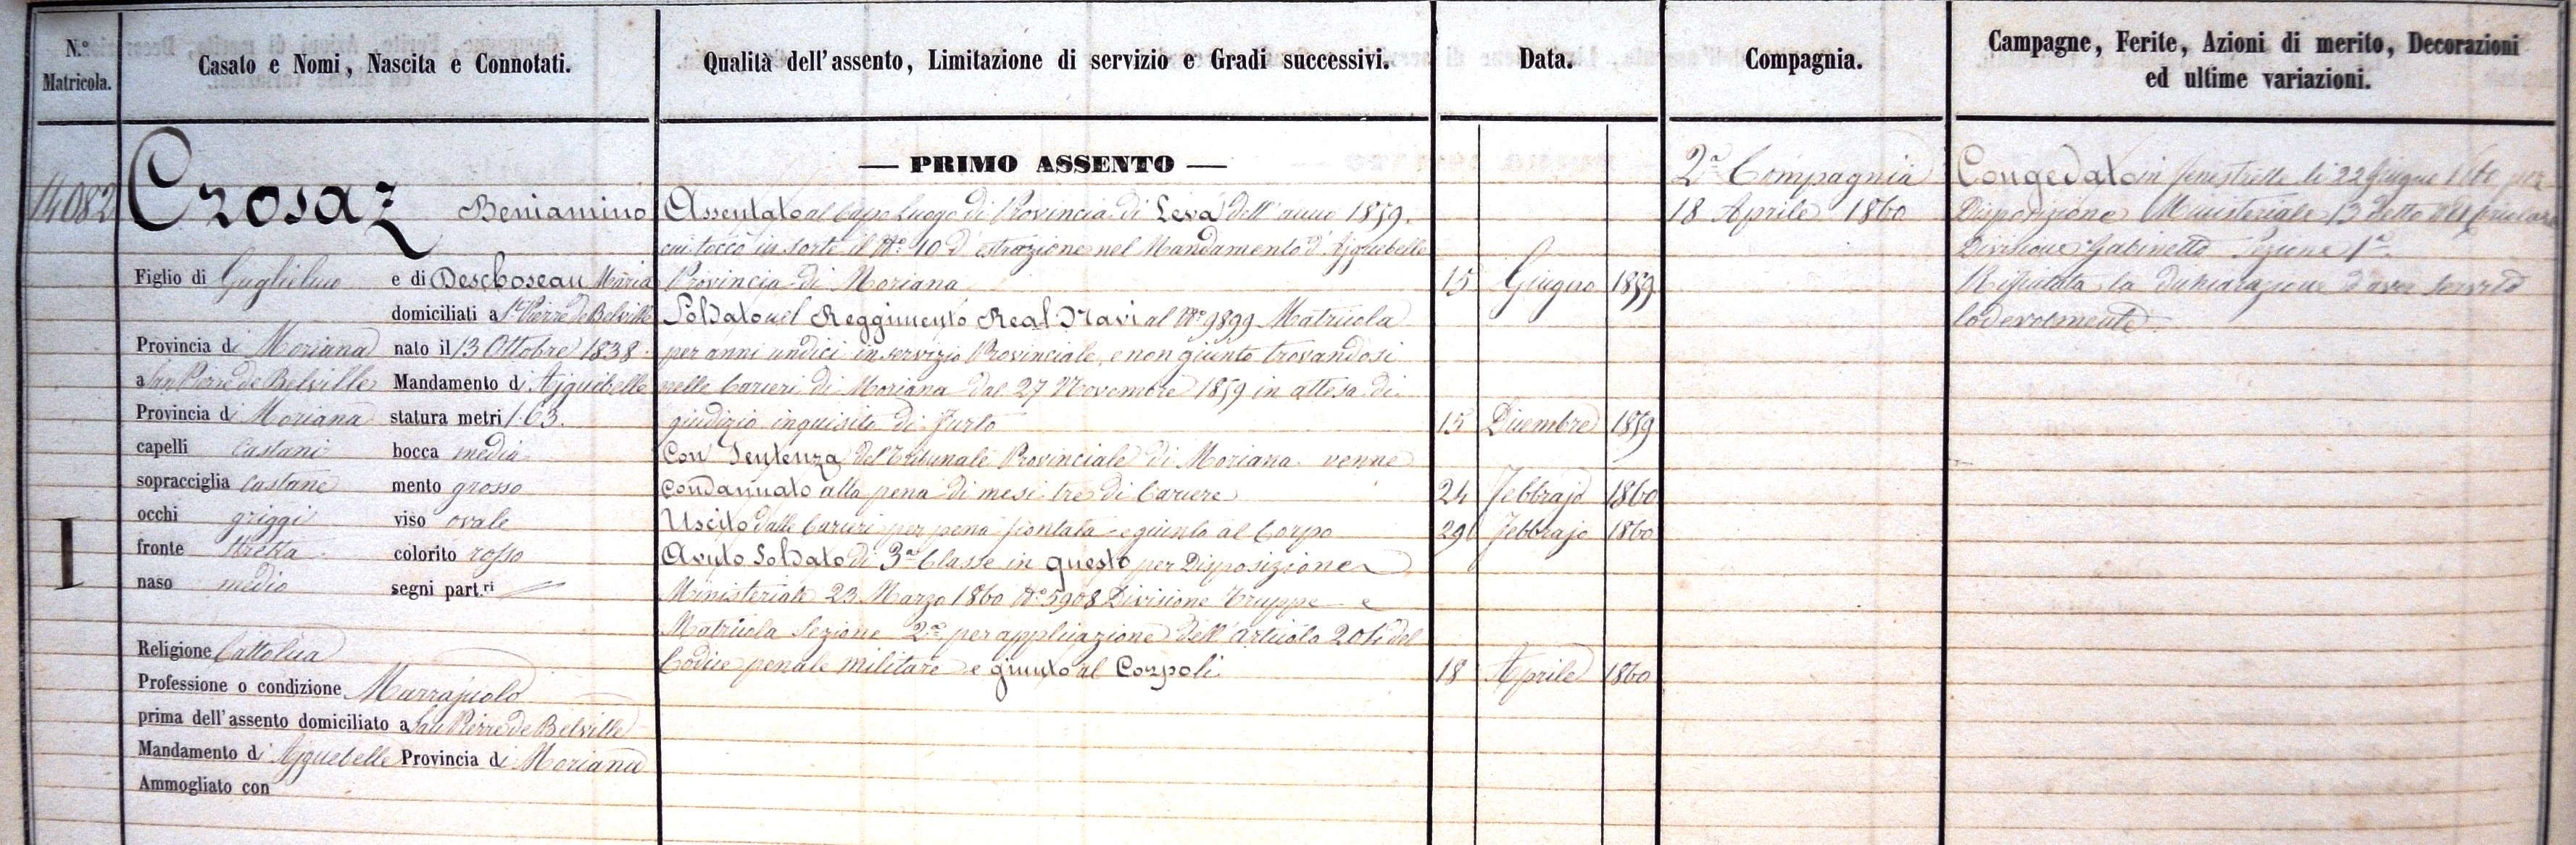 N.° Matricola.
Casato e Nomi, Nascita e Connotati.
Qualità dell'assento, Limitazione di servizio e Gradi successivi.
Data.
Compagnia.
Campagne, Ferite, Azioni di merito, Decorazioni
ed ultime variazioni.
14082
Crosaz Beniamino
Figlio di Guglielmo e di Deschoseau Maria
domiciliati a St. Pierre de Belville
Provincia di Moriana nato il 13 Ottobre 1838
a San Pierre de Belville Mandamento di Ajguebelle
Provincia di Moriana statura metri 1.63.
capelli Castani bocca media
sopracciglia Castane mento grosso
occhi griggi viso ovale
I
fronte stretta colorito rosso
naso medio segni part.ri
Religione Cattolica
Professione o condizione Marrajuolo
prima dell'assento domiciliato a San Pierre de Belville
Mandamento di Ajguebelle Provincia di Moriana
Ammogliato con
— PRIMO ASSENTO —
Assentato al Capo Luogo di Provincia di Leva dell'anno 1859.
cui toccò in sorte il N.° 10 d'estrazione nel Mandamento d'Ajguebelle
Provincia di Moriana 15 Giugno 1859
Soldato nel Reggimento Real Navi al N.° 9899 Matricola
per anni undici in servizio Provinciale, e non giunto trovandosi
nelle Carceri di Moriana dal 27 Novembre 1859 in attesa di
giudizio inquisito di furto 15 Dicembre 1859
Con Sentenza del Tribunale Provinciale di Moriana venne
Condannato alla pena di mesi tre di Carcere 24 Febbrajo 1860
Uscito dalle Carceri per pena scontata e giunto al Corpo 29 Febbrajo 1860
Avuto Soldato di 3.a Classe in questo per Disposizione
Ministeriale 23 Marzo 1860 N.° 5908 Divisione Truppe e
Matricola Sezione 2.a per applicazione dell'articolo 204 del
Codice penale militare e giunto al Corpo li 18 Aprile 1860
2.a Compagnia
18 Aprile 1860
Congedato in Fenestrelle li 22 Giugno 1860 per
Disposizione Ministeriale 13 detto
Divisione Gabinetto Sezione 1.a
Rifiutata la dichiarazione d'aver servito
lodevolmente.